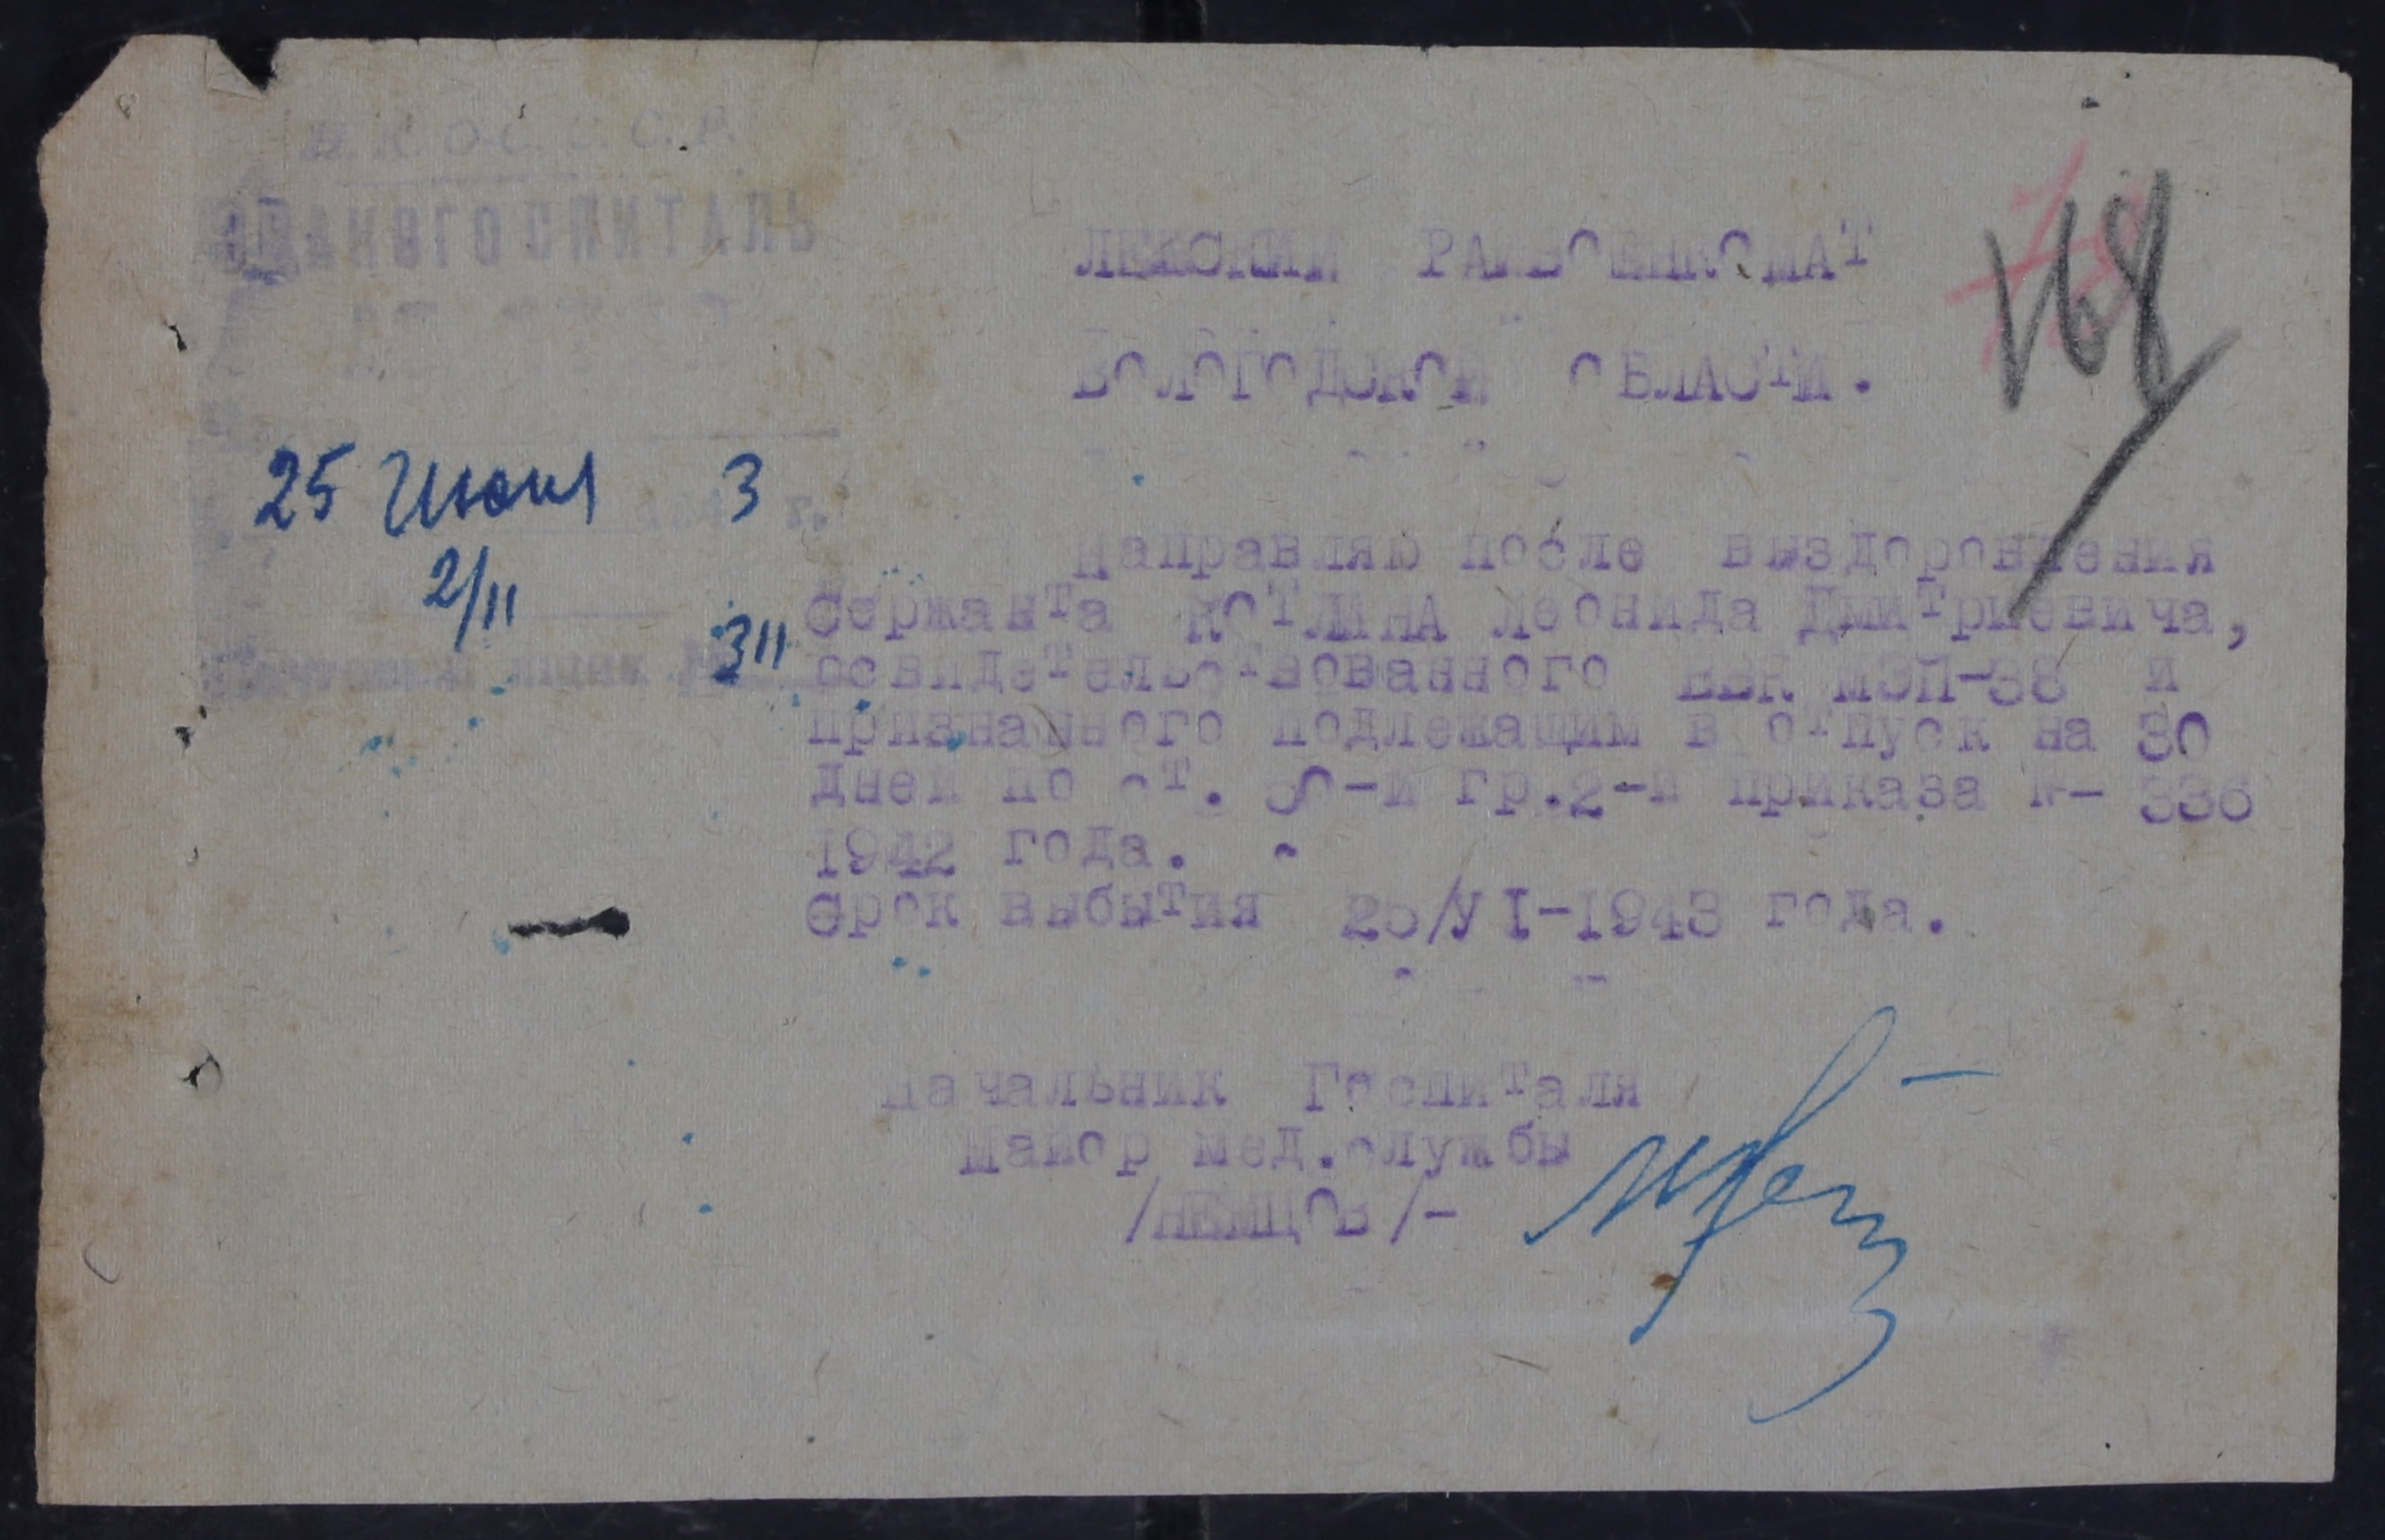 Н.К.О.С.С.С.Р.
ЭВАКОГОСПИТАЛЬ
25 Июня 3 г.
2/11
Почтовый ящик № 311
168
РАЙВОЕНКОМАТ
ВОЛОГОДСКОЙ ОБЛАСТИ.
Направляю после выздоровления
Сержанта КОТЛИНА Леонида Дмитриевича,
освидетельствованного ВВК МЭП-38 и
признанного подлежащим в отпуск на 30
дней по ст. -й гр.2-й приказа №- 336
1942 года.
Срок выбытия 25/УІ-1943 года.
Начальник Госпиталя
Майор мед.службы
/НЕМЦОВ/-